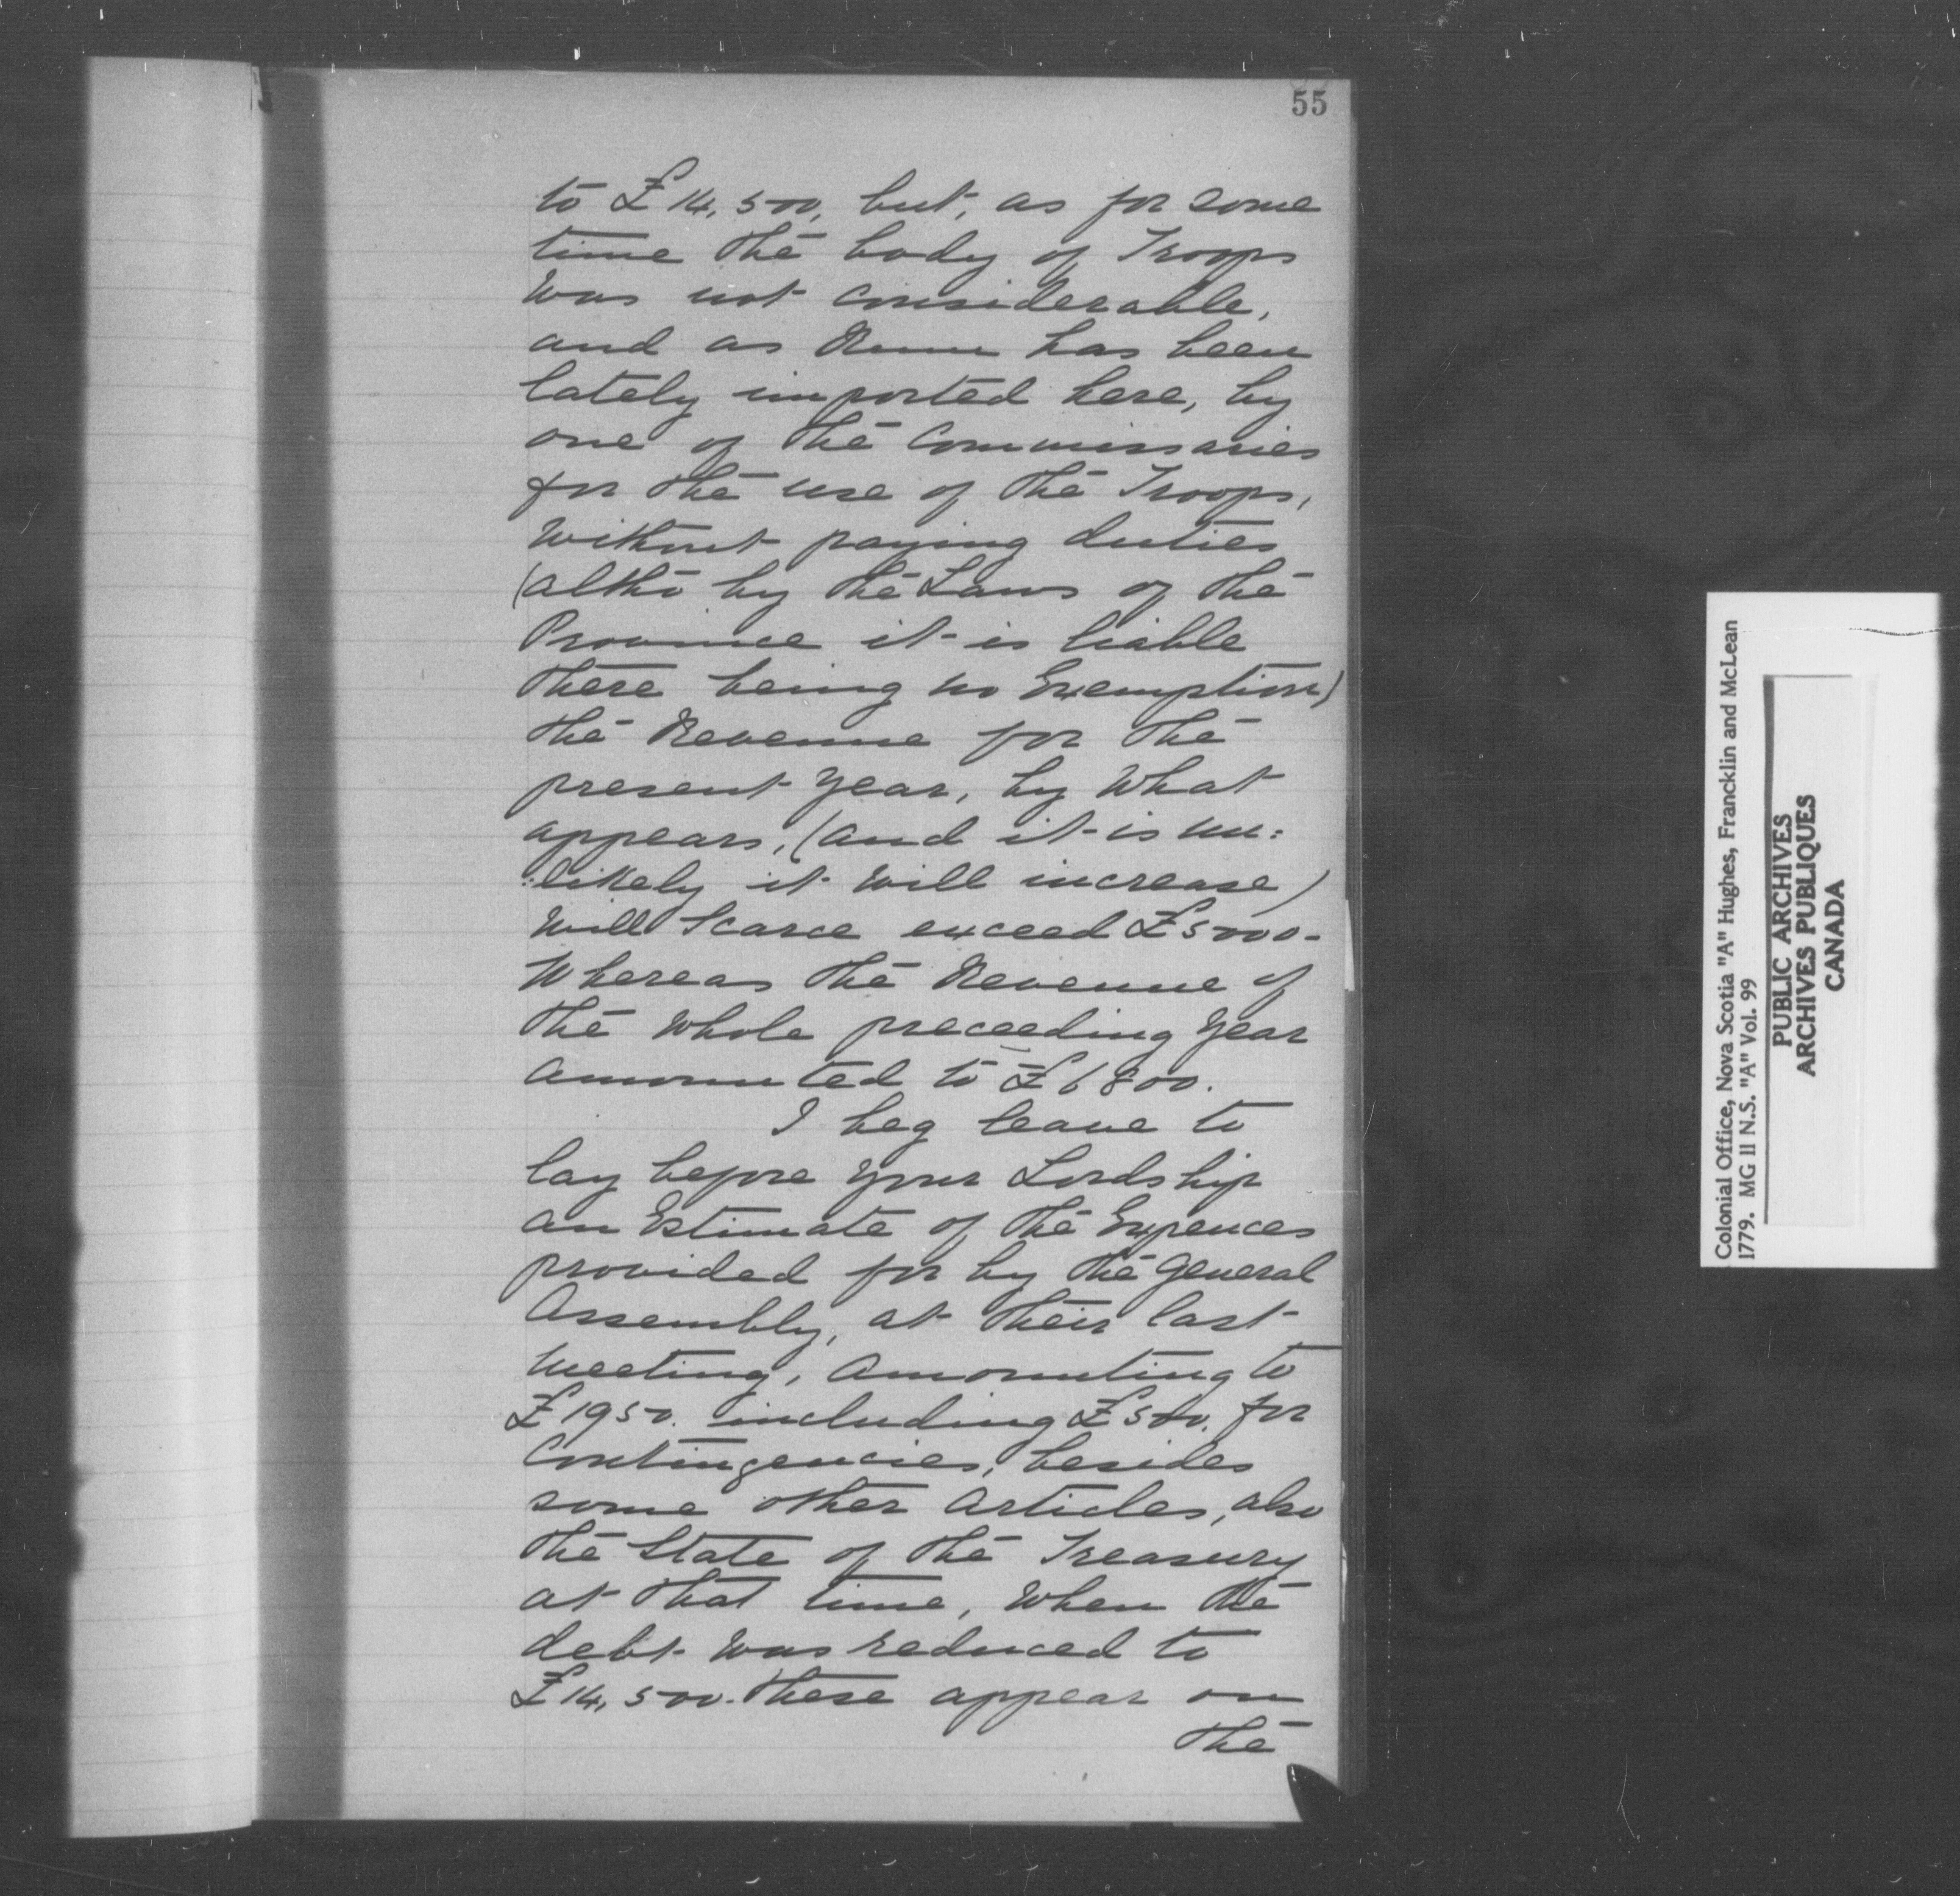 55
to £14,500, but, as for some
time the body of Troops
Was not considerable,
and as Rum has been
lately imported here, by
one of the Commissaries
for the use of the Troops,
Without paying duties
(altho by the Laws of the
Province it is liable
there being no Exemption)
the Revenue for the
present year, by What
appears, (and it is un:
:likely it will increase)
Will Scarce exceed £5000-
Whereas the Revenue of
the Whole preceeding year
amounted to £6800.
I beg leave to
lay before your Lordship
an Estimate of the Expences
provided for by the General
Assembly, at their last
meeting, amounting to
£1950. including £500. for
Contingencies, besides
some other Articles, also
the State of the Treasury
at that time, When the
debt Was reduced to
£14,500. these appear on
the
Colonial Office, Nova Scotia "A" Hughes, Francklin and McLean
1779. MG II N.S. "A" Vol. 99
PUBLIC ARCHIVES
ARCHIVES PUBLIQUES
CANADA